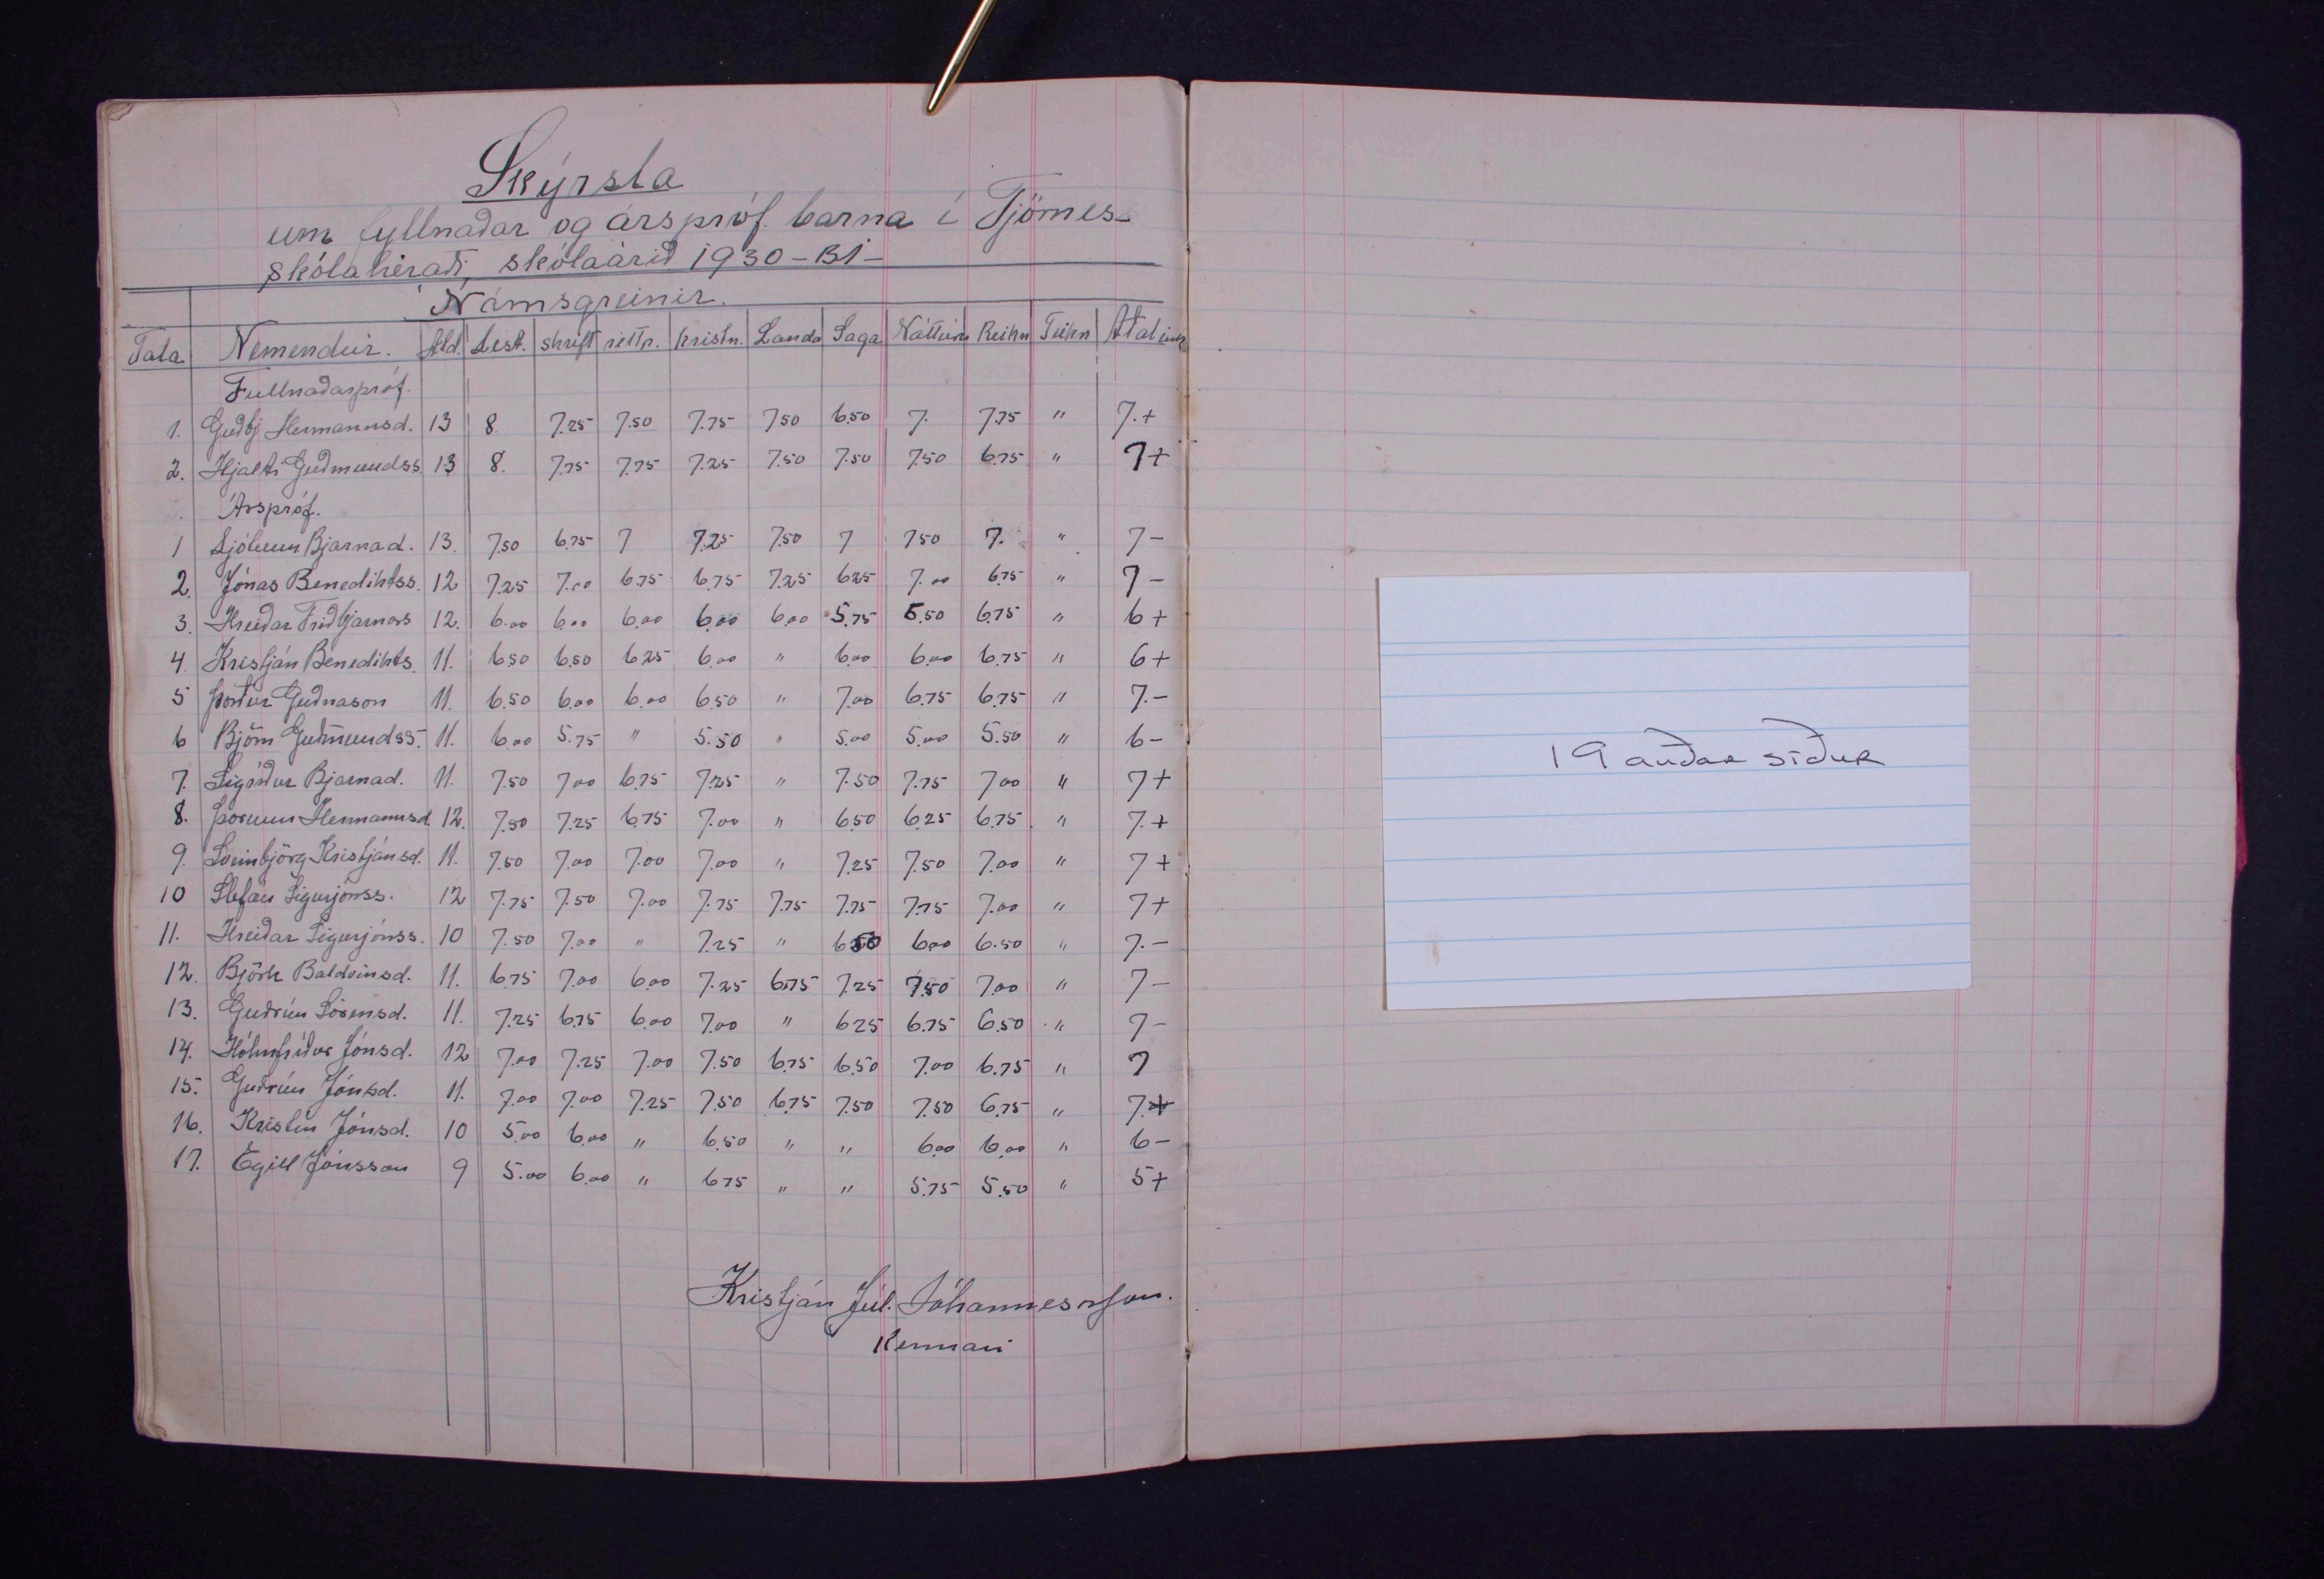 Skýrsla
um fyllnaðar og árspróf barna í Tjörnes-
skólahéraði, skólaárið 1930-31-
Námsgreinir.
Tala Nemendur. Ald. Lest. skrift rettr. kristn. Landa Saga Náttúru Reikn Teikn Aðaleink
Fullnaðarpróf.
1. Guðbj Hermannsd. 13 8. 7.25 7.50 7.75 7.50 6.50 7. 7.75 " 7.+
2. Hjalti Guðmundss. 13 8. 7.75 7.75 7.25 7.50 7.50 7.50 6.75 " 7+
Árspróf.
1 Ljótunn Bjarnad. 13. 7.50 6.75 7 7.25 7.50 7 7.50 7. " 7-
2. Jónas Benediktss. 12 7.25 7.00 6.75 6.75 7.25 6.25 7.00 6.75 " 7-
3. Hreiðar Friðbjarnars 12. 6.00 6.00 6.00 6.00 6.00 5.75 5.50 6.75 " 6+
4. Kristján Benedikts. 11. 6.50 6.50 6.25 6.00 " 6.00 6.00 6.75 " 6+
5 Þórður Guðnason 11. 6.50 6.00 6.00 6.50 " 7.00 6.75 6.75 " 7.-
6 Björn Guðmundss. 11. 6.00 5.75 " 5.50 " 5.00 5.00 5.50 " 6-
7. Sigríður Bjarnad. 11. 7.50 7.00 6.75 7.25 " 7.50 7.75 7.00 " 7+
8. Þórunn Hermannsd 12. 7.50 7.25 6.75 7.00 " 6.50 6.25 6.75 " 7.+
9. Sveinbjörg Kristjánsd. 11. 7.50 7.00 7.00 7.00 " 7.25 7.50 7.00 " 7+
10 Stefán Sigurjónss. 12 7.75 7.50 7.00 7.75 7.75 7.75 7.75 7.00 " 7+
11. Hreiðar Sigurjónss. 10 7.50 7.00 " 7.25 " 6.50 6.00 6.50 " 7.-
12. Björk Baldvinsd. 11. 6.75 7.00 6.00 7.25 6.75 7.25 7.50 7.00 " 7-
13. Guðrún Sörensd. 11. 7.25 6.75 6.00 7.00 " 6.25 6.75 6.50 " 7-
14. Hólmfríður Jónsd. 12 7.00 7.25 7.00 7.50 6.75 6.50 7.00 6.75 " 7
15. Guðrún Jónsd. 11. 7.00 7.00 7.25 7.50 6.75 7.50 7.50 6.75 " 7.+
16. Kristín Jónsd. 10 5.00 6.00 " 6.50 " " 6.00 6.00 " 6-
17. Egill Jónsson 9 5.00 6.00 " 6.75 " " 5.75 5.50 " 5+
Kristján Júl. Jóhannesson.
Kennari
19 auðar síður